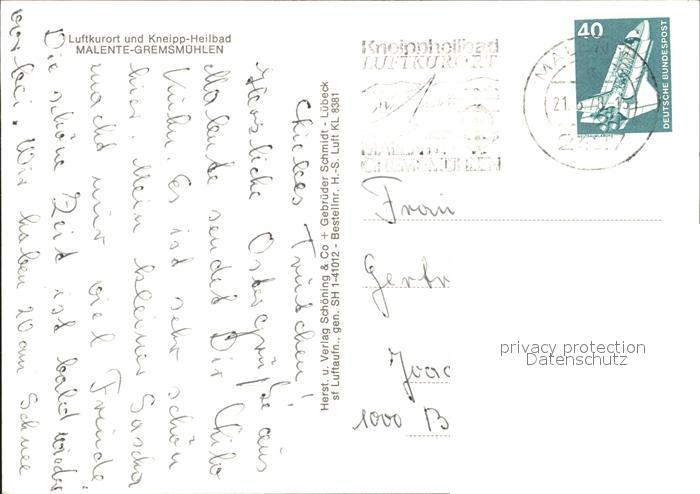 Luftkurort und Kneipp-Heilbad
MALENTE-GREMSMÜHLEN
Trutchen!
Herzliche Ostergrüße aus
Malente sendet Dir
Es ist sehr schön
hier. Mein kleiner Sascha
macht mir viel Freude
Die schöne Zeit ist bald wieder
vorbei. Wir haben 20 cm Schnee
Herst. u. Verlag Schöning & Co + Gebrüder Schmidt - Lübeck
sf Luftaufn., gen. SH 1-41012 - Bestellnr. H.-S. Luft KL 8381
Kneippheilbad
LUFTKURORT
MALENTE
GREMSMÜHLEN
MAL
21.3.78-15
40
DEUTSCHE BUNDESPOST
Frau
Gertr
Joac
1000 B
privacy protection
Datenschutz